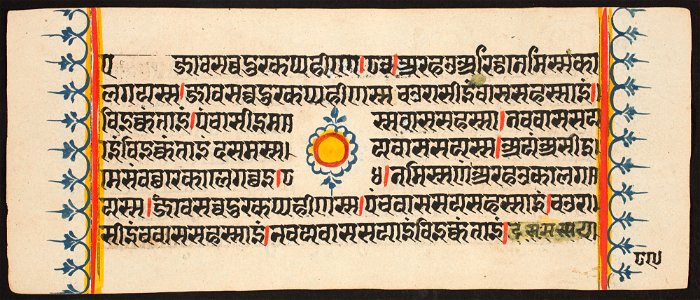 जावसव्वदुरकप्पहीण
लगयस्स।जावसव्वदुरकप्पहीणस्स चउरासीइंवाससहस्साइं।
विइक्कंताइं।पंचासीइमस्सवाससहस्सा।नववाससया
इंविइक्कंताइं दसमस्स।यवाससयस्स।अयंअसीइ
मेसंवच्छरेकालेगच्छइ।नमिस्सणंअरहउकालग
यस्स।जावसव्वदुरकप्पहीणस्स।पंचवाससयसहस्साइं।चउरा
सीइंचवाससहस्साइं।नवयवाससयाइंविइक्कंताइं।दसमस्सया